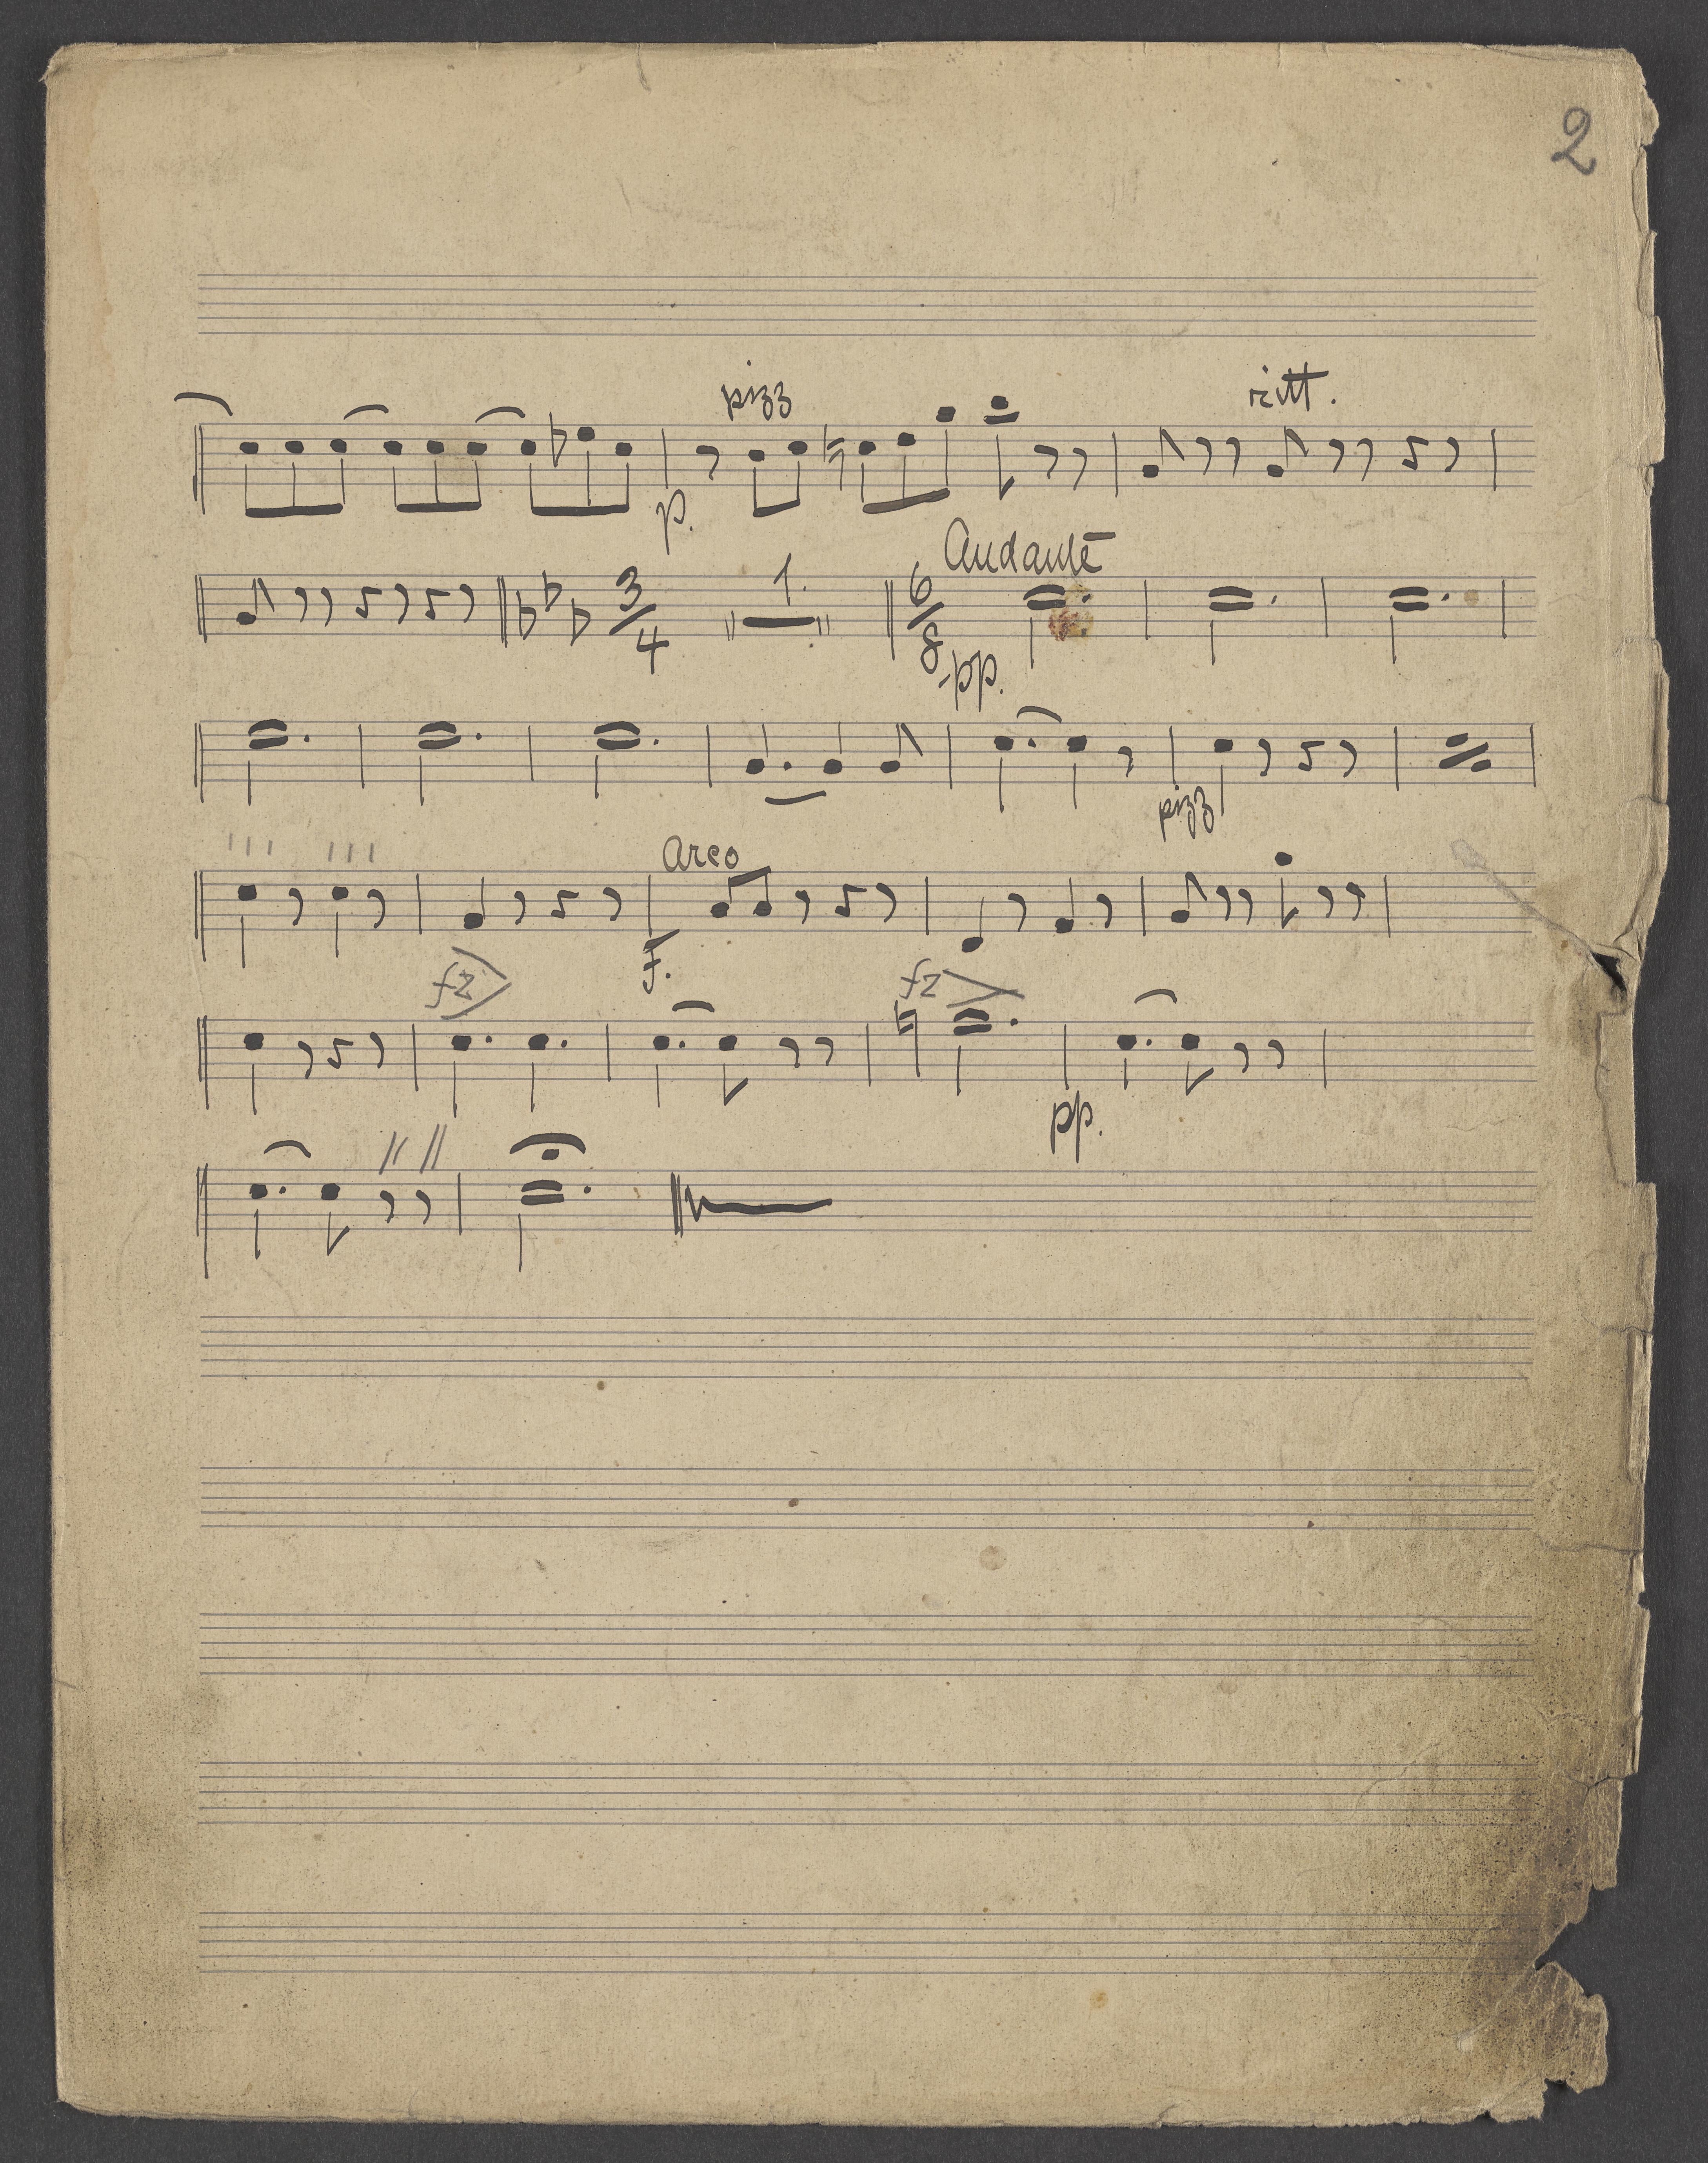 2
pizz ritt.
p.
Andante
3/4 1. 6/8
pp.
pizz
arco
f.
fz fz
pp.